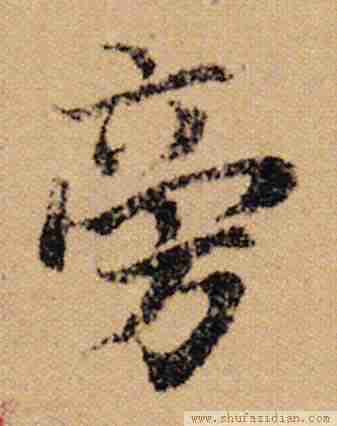 旁
www.shufazidian.com